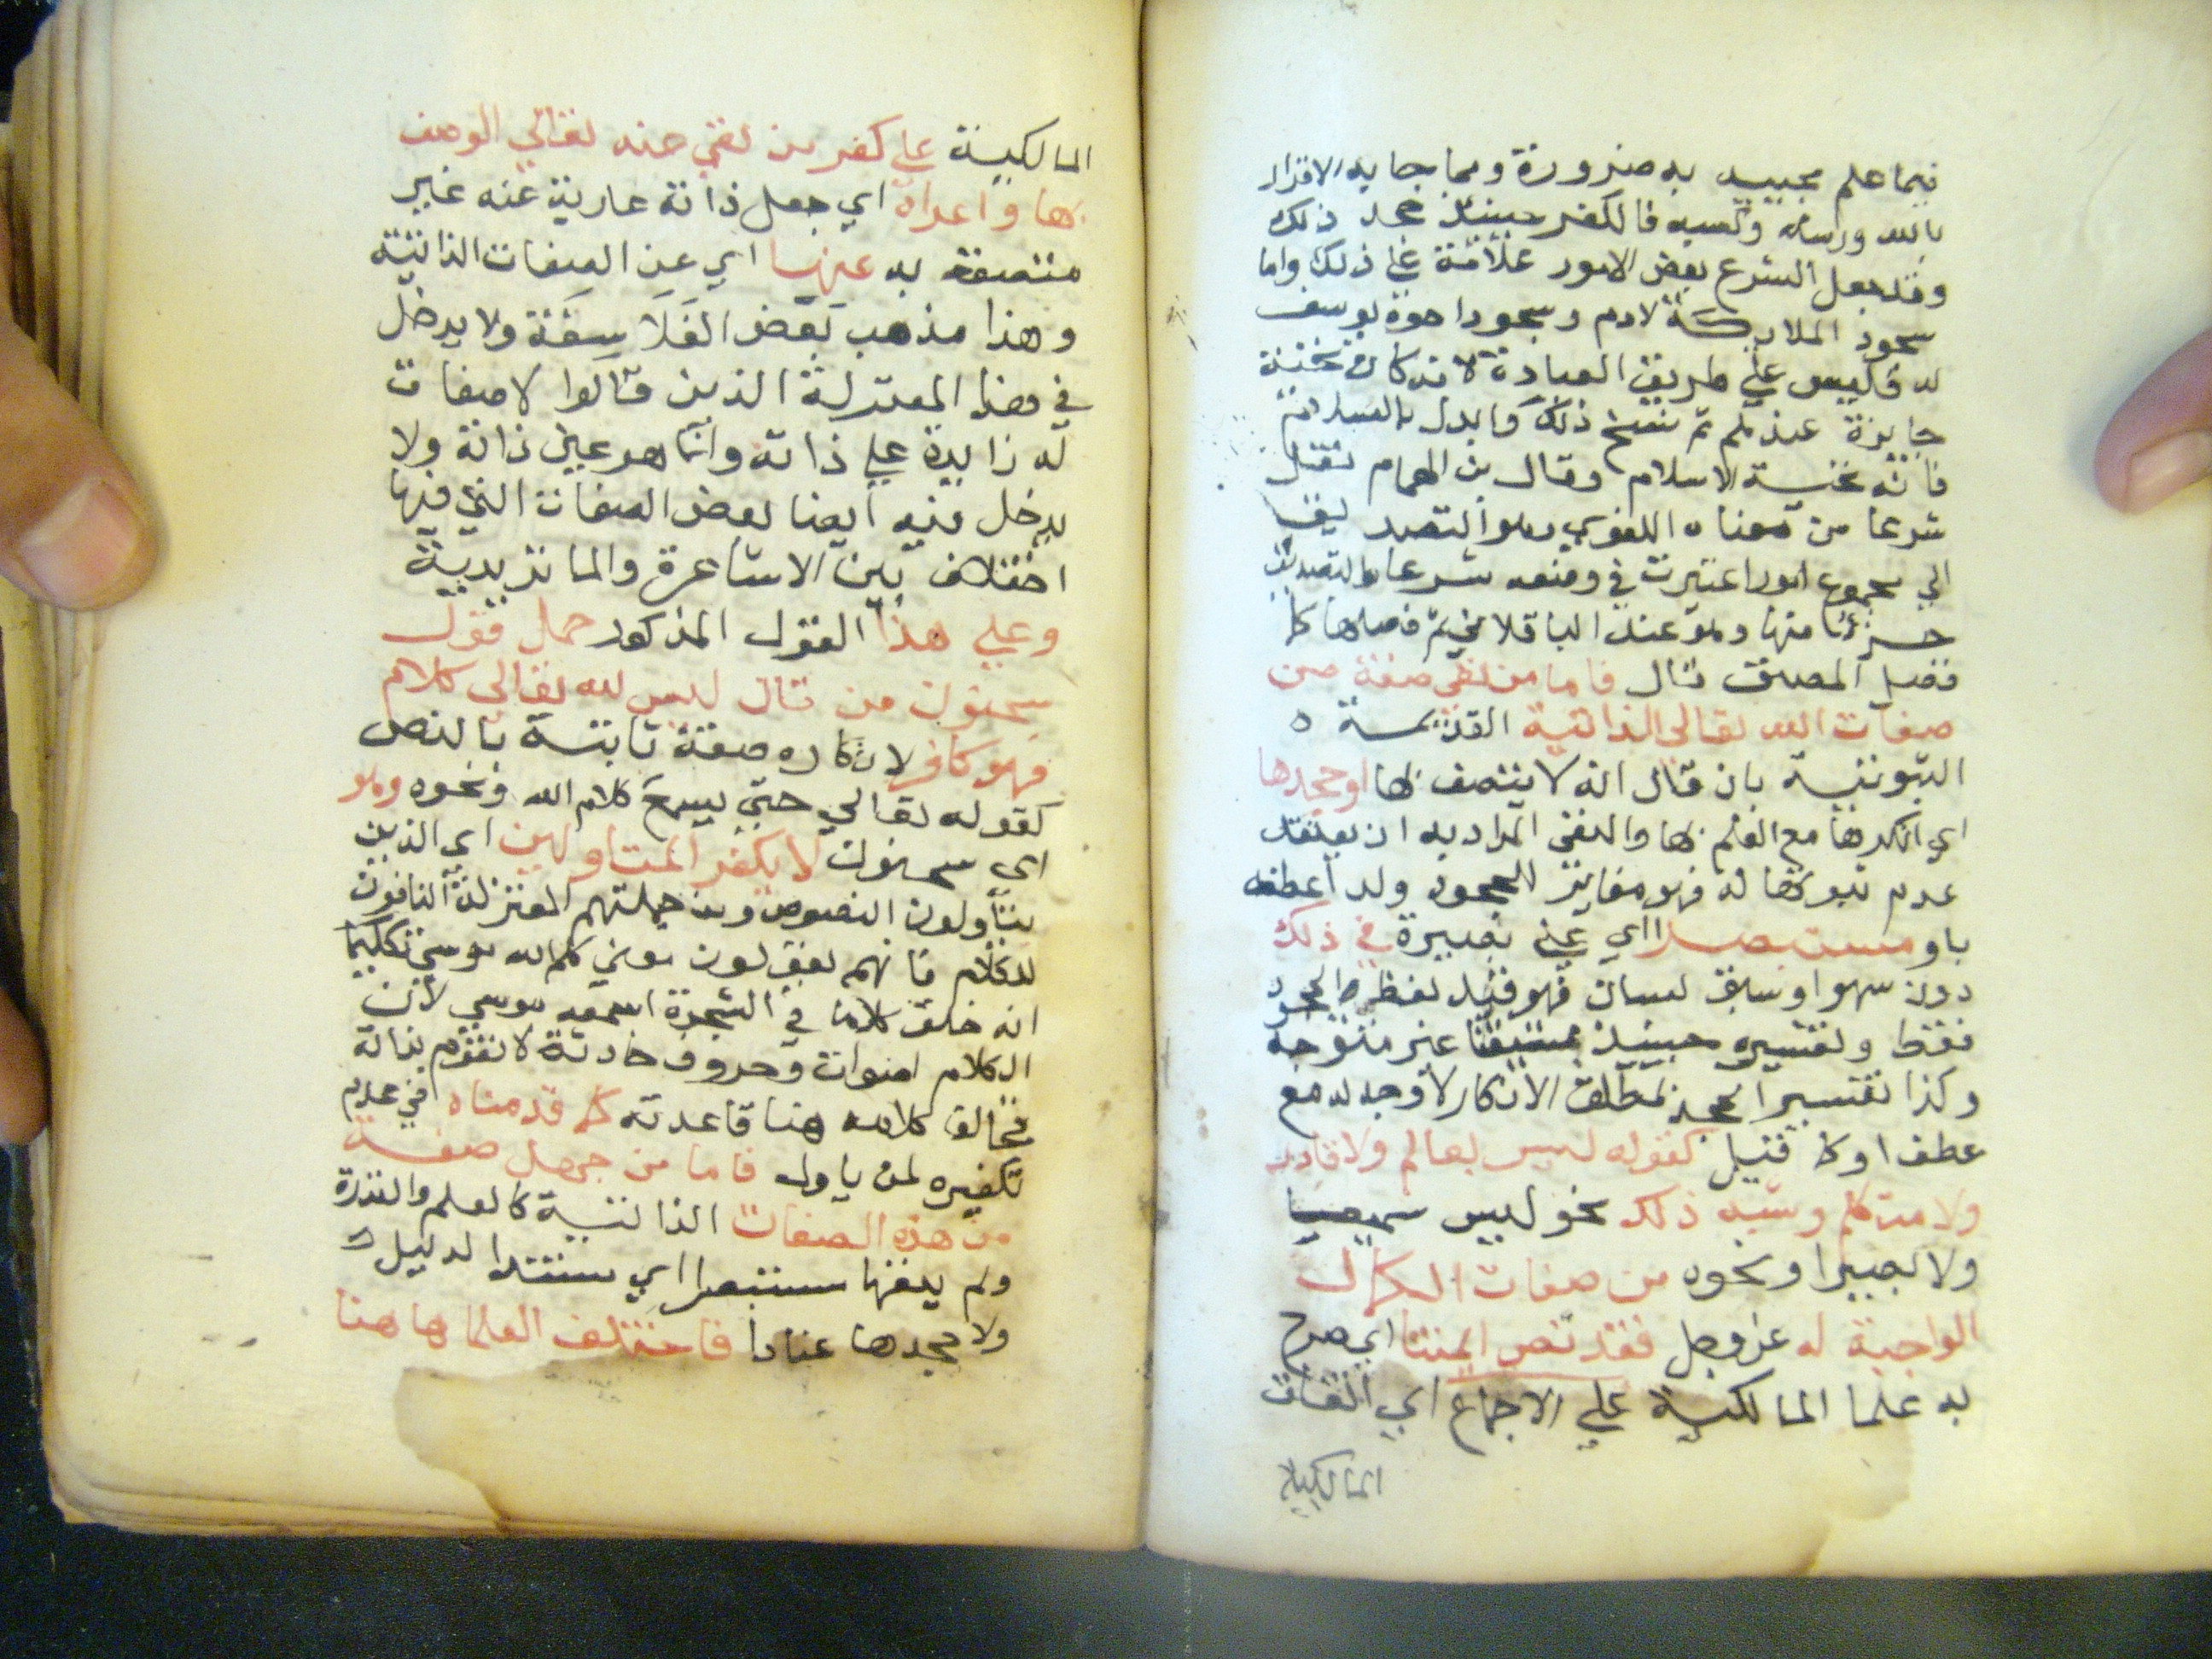 فيما علم مجييه به ضرورة ومما جا به الاقرار
بالله ورسله وكتبه فالكفر حينئذ جحد ذلك
وقد جعل الشرع بعض الامور علامة على ذلك واما
سجود الملايكة لادم وسجود اخوة يوسف
له فليس على طريق العبادة لانه كان تحية
جايزة عندهم ثم نسخ ذلك وابدل بالسلام
فانه تحية الاسلام وقال بن الهمام نقل
شرعا من معناه اللغوي وهو التصديق
الي مجموع امور اعتبرت في وضعه شرعا والتصديق
جزؤ منها وهو عند الباقلاني ثم فصلها كما
فصل المصنف قال فاما من نفى صفة من
صفات الله تعالى الذاتية القديمة ه
الثبوتية بان قال انه لا يتصف بها اوجحدها
اي انكرها مع العلم بها والنفى المراد به ان يعتقد
عدم ثبوتها له فهو مغاير للجحود ولذا عطفه
باو مستبصرا اي على بصيرة في ذلك
دون سهو او سبق لسان فهو قيد لفظ الجحود
فقط وتفسيره حينئذ غير متوجه
وكذا تفسير الجحد بمطلق الانكار لا وجه له مع
عطف او كما قيل كقوله ليس بعالم ولا قادر
ولا متكلم وشبه ذلك نحو ليس سميعا
ولا بصيرا ونحوه من صفات الكمال
الواجبة له عز وجل فقد نص ايمتنا اي صرح
به علما المالكية على الاجماع اي اتفاق
المالكية
المالكية على كفر من نفى عنه تعالى الوصف
بها واعراه اي جعل ذاته عارية عنه غير
متصفة به عنها اي عن الصفات الذاتية
وهذا مذهب بعض الفلاسفة ولا يدخل
في هذا المعتزلة الذين قالوا لا صفات
له زايدة على ذاته وانما هو عين ذاته ولا
يدخل فيه ايضا بعض الصفات التي فيها
اختلاف بين الاشاعرة والماتريدية
وعلى هذا القول المذكور حمل قول
سحنون من قال ليس لله تعالى كلام
فهو كافر لانكاره صفة ثابتة بالنص
كقوله تعالي حتى يسمع كلام الله ونحوه وهو
اى سحنون لا يكفر المتاولين اي الذين
يتأولون النصوص ومن جملتهم المعتزلة النافون
للكلام فانهم يقولون معني كلم الله موسي تكليما
انه خلق كلاما في الشجرة اسمعه موسي لان
الكلام اصوات وحروف حادثة لا تقوم بذاته
فخالف كلامه هنا قاعدته كما قدمناه في عدم
تكفيره لمن ياول فاما من جهل صفة
من هذه الصفات الذاتية كالعلم والقدرة
ولم ينفها مستبصرا اي مستندا لدليل
ولا جحدها عنادا فاختلف العلما هاهنا